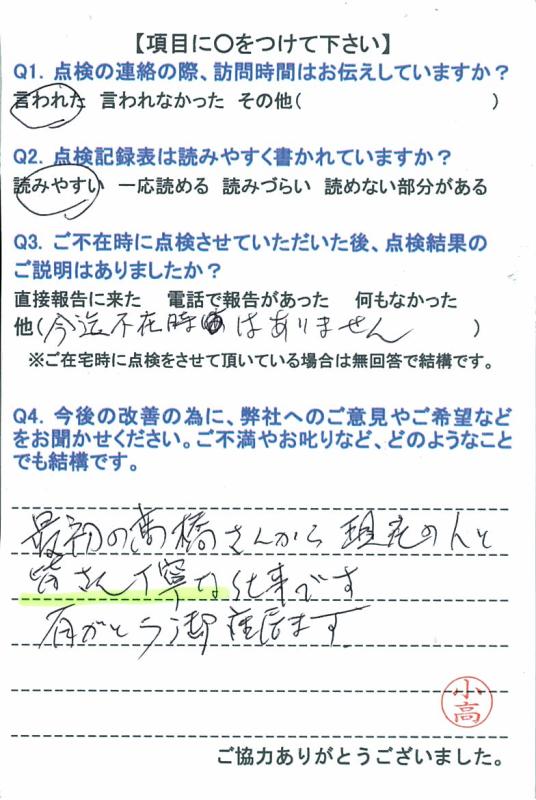 【項目に〇をつけて下さい】
Q1. 点検の連絡の際、訪問時間はお伝えしていますか？
言われた 言われなかった その他( )
Q2. 点検記録表は読みやすく書かれていますか？
読みやすい 一応読める 読みづらい 読めない部分がある
Q3. ご不在時に点検させていただいた後、点検結果の
ご説明はありましたか？
直接報告に来た 電話で報告があった 何もなかった
他(今迄不在時はありません)
※ご在宅時に点検をさせて頂いている場合は無回答で結構です。
Q4. 今後の改善の為に、弊社へのご意見やご希望など
をお聞かせください。ご不満やお叱りなど、どのようなこと
でも結構です。
最初の高橋さんから 現在の人と
皆さん丁寧な仕事です
有がとう御座居ます
小高
ご協力ありがとうございました。